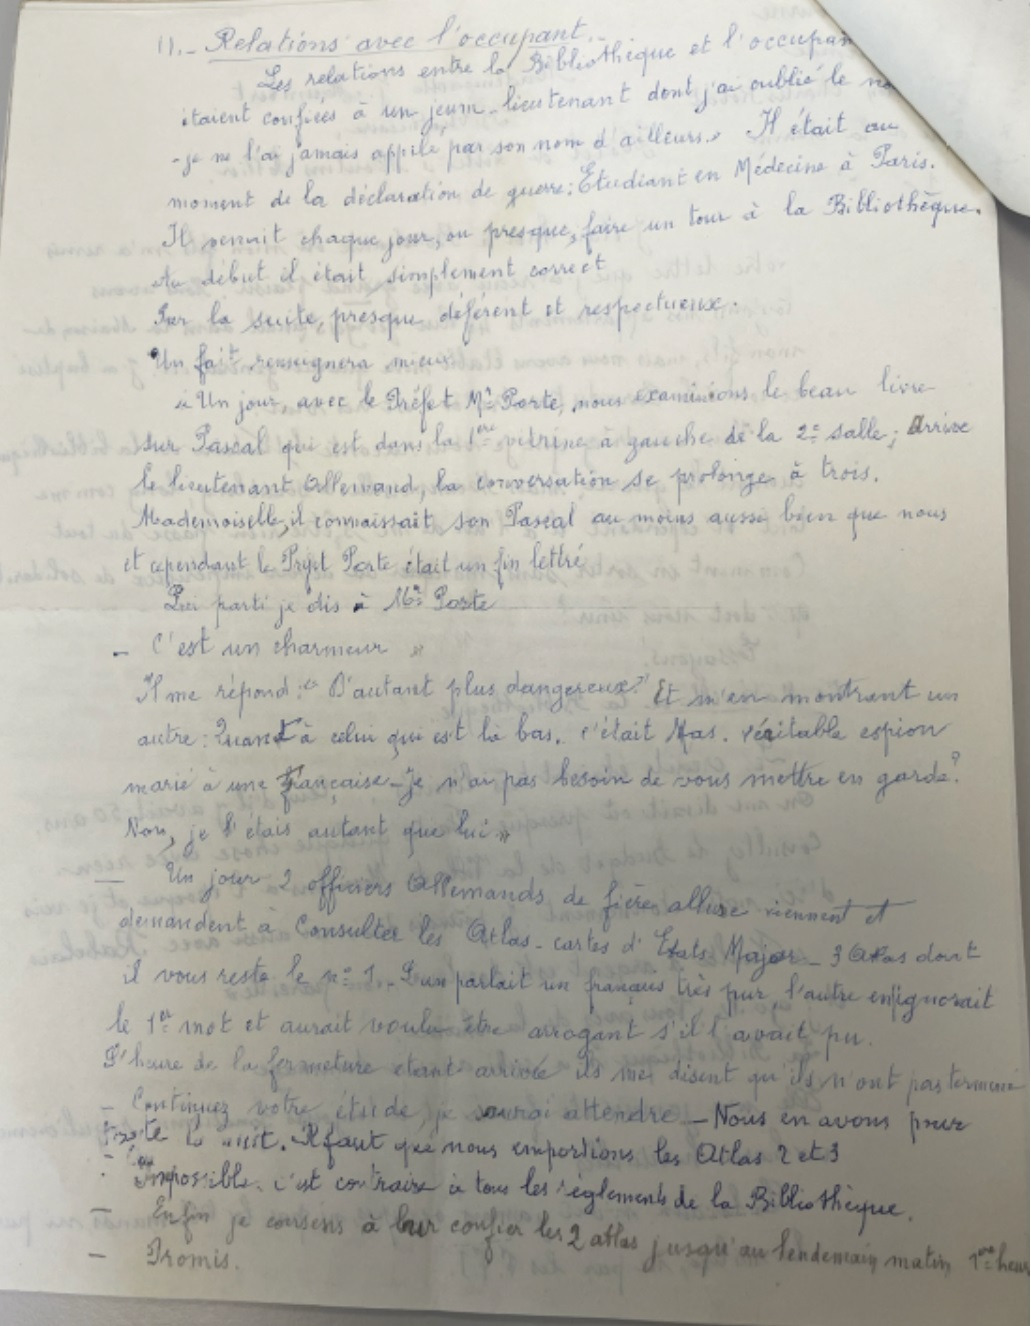 1).- Relations avec l'occupant.-
Les relations entre la Bibliothèque et l'occupan
étaient confiées à un jeune lieutenant dont j'ai oublié le no
- je ne l'ai jamais appelé par son nom d'ailleurs. » Il était au
moment de la déclaration de guerre; Etudiant en Médecine à Paris.
Il venait chaque jour, ou presque, faire un tour à la Bibliothèque.
Au début il était simplement correct
Par la suite, presque, déférent et respectueux.
Un fait renseignera mieux
« Un jour, avec le Préfet Mr Porte, nous examinions le beau livre
sur Pascal qui est dans la 1ère vitrine à gauche de la 2e salle; Arrive
le lieutenant Allemand, la conversation se prolonge à trois.
Mademoiselle, il connaissait son Pascal au moins aussi bien que nous
et cependant le Préfet Porte était un fin lettré
Lui parti je dis à Mr Porte
- C'est un charmeur »
Il me répond: « D'autant plus dangereux." Et m'en montrant un
autre: Quant à celui qui est là bas, c'était Has. véritable espion
marié à une française - je n'ai pas besoin de vous mettre en garde?
Non, je l'étais autant que lui »
- Un jour 2 officiers Allemands de fière allure viennent et
demandent à Consulter les Atlas - cartes d'Etats Major - 3 Atlas dont
il vous reste le n° 1. - L'un parlait un français très pur, l'autre en ignorait
le 1er mot et aurait voulu être arrogant s'il l'avait pu.
L'heure de la fermeture étant arrivée ils me disent qu'ils n'ont pas terminé
- Continuez votre étude, je saurai attendre - Nous en avons pour
toute la nuit. Il faut que nous emportions les Atlas 2 et 3
- Impossible. c'est contraire à tous les règlements de la Bibliothèque.
- Enfin je consens à leur confier les 2 atlas jusqu'au lendemain matin 1ère heur
- Promis.